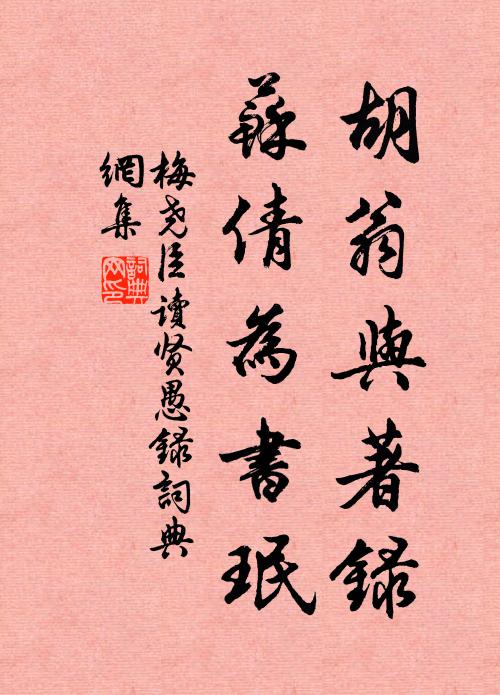 胡翁與著錄
蘇倩為書珉
梅堯臣讀賢愚錄詞典
網集
詞典網印